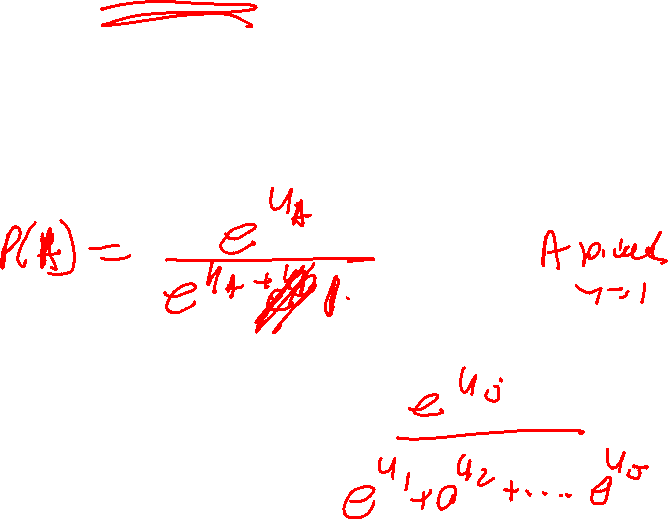 P(A) = e^{u_A} / e^{u_A} + 1. A picked
y=1
e^{u_j} / e^{u_1} + e^{u_2} + .... e^{u_J}